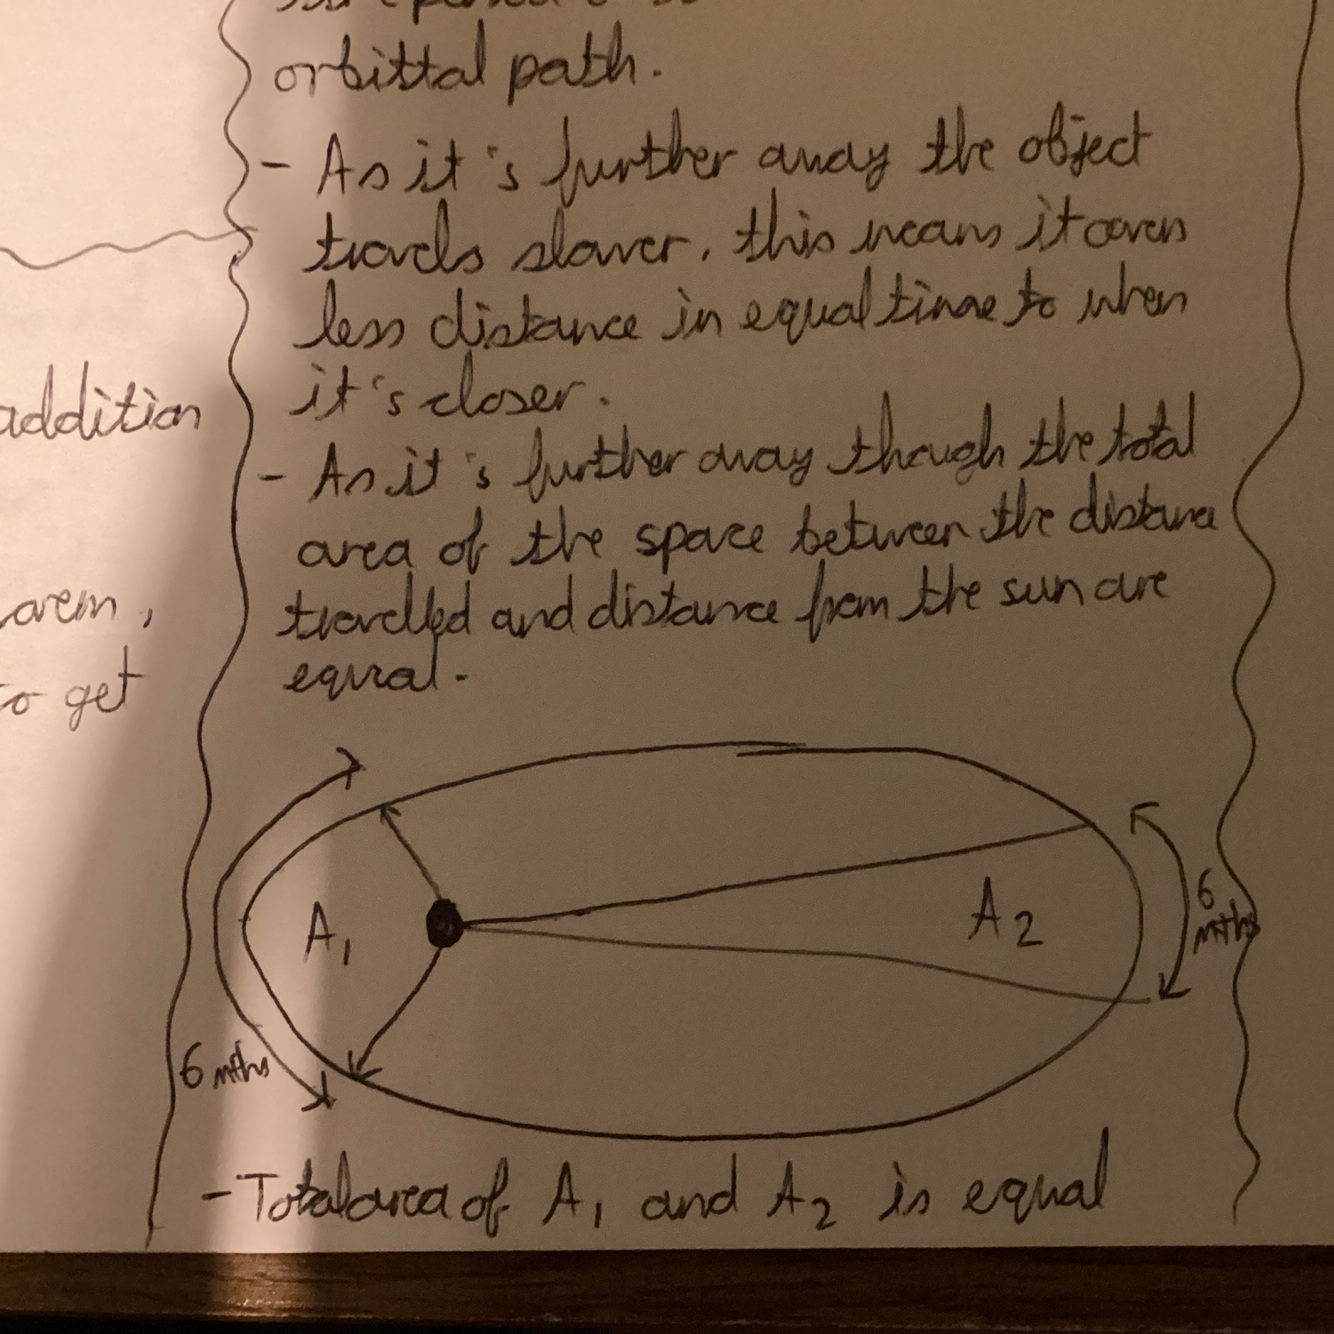 orbittal path.
- As it's further away the object
travels slower, this means it covers
less distance in equal time to when
it's closer.
- As it's further away though the total
area of the space between the distance
travelled and distance from the sun are
equal.
addition
to get
A1
A2
6
mths
6 mths
- Total area of A1 and A2 is equal